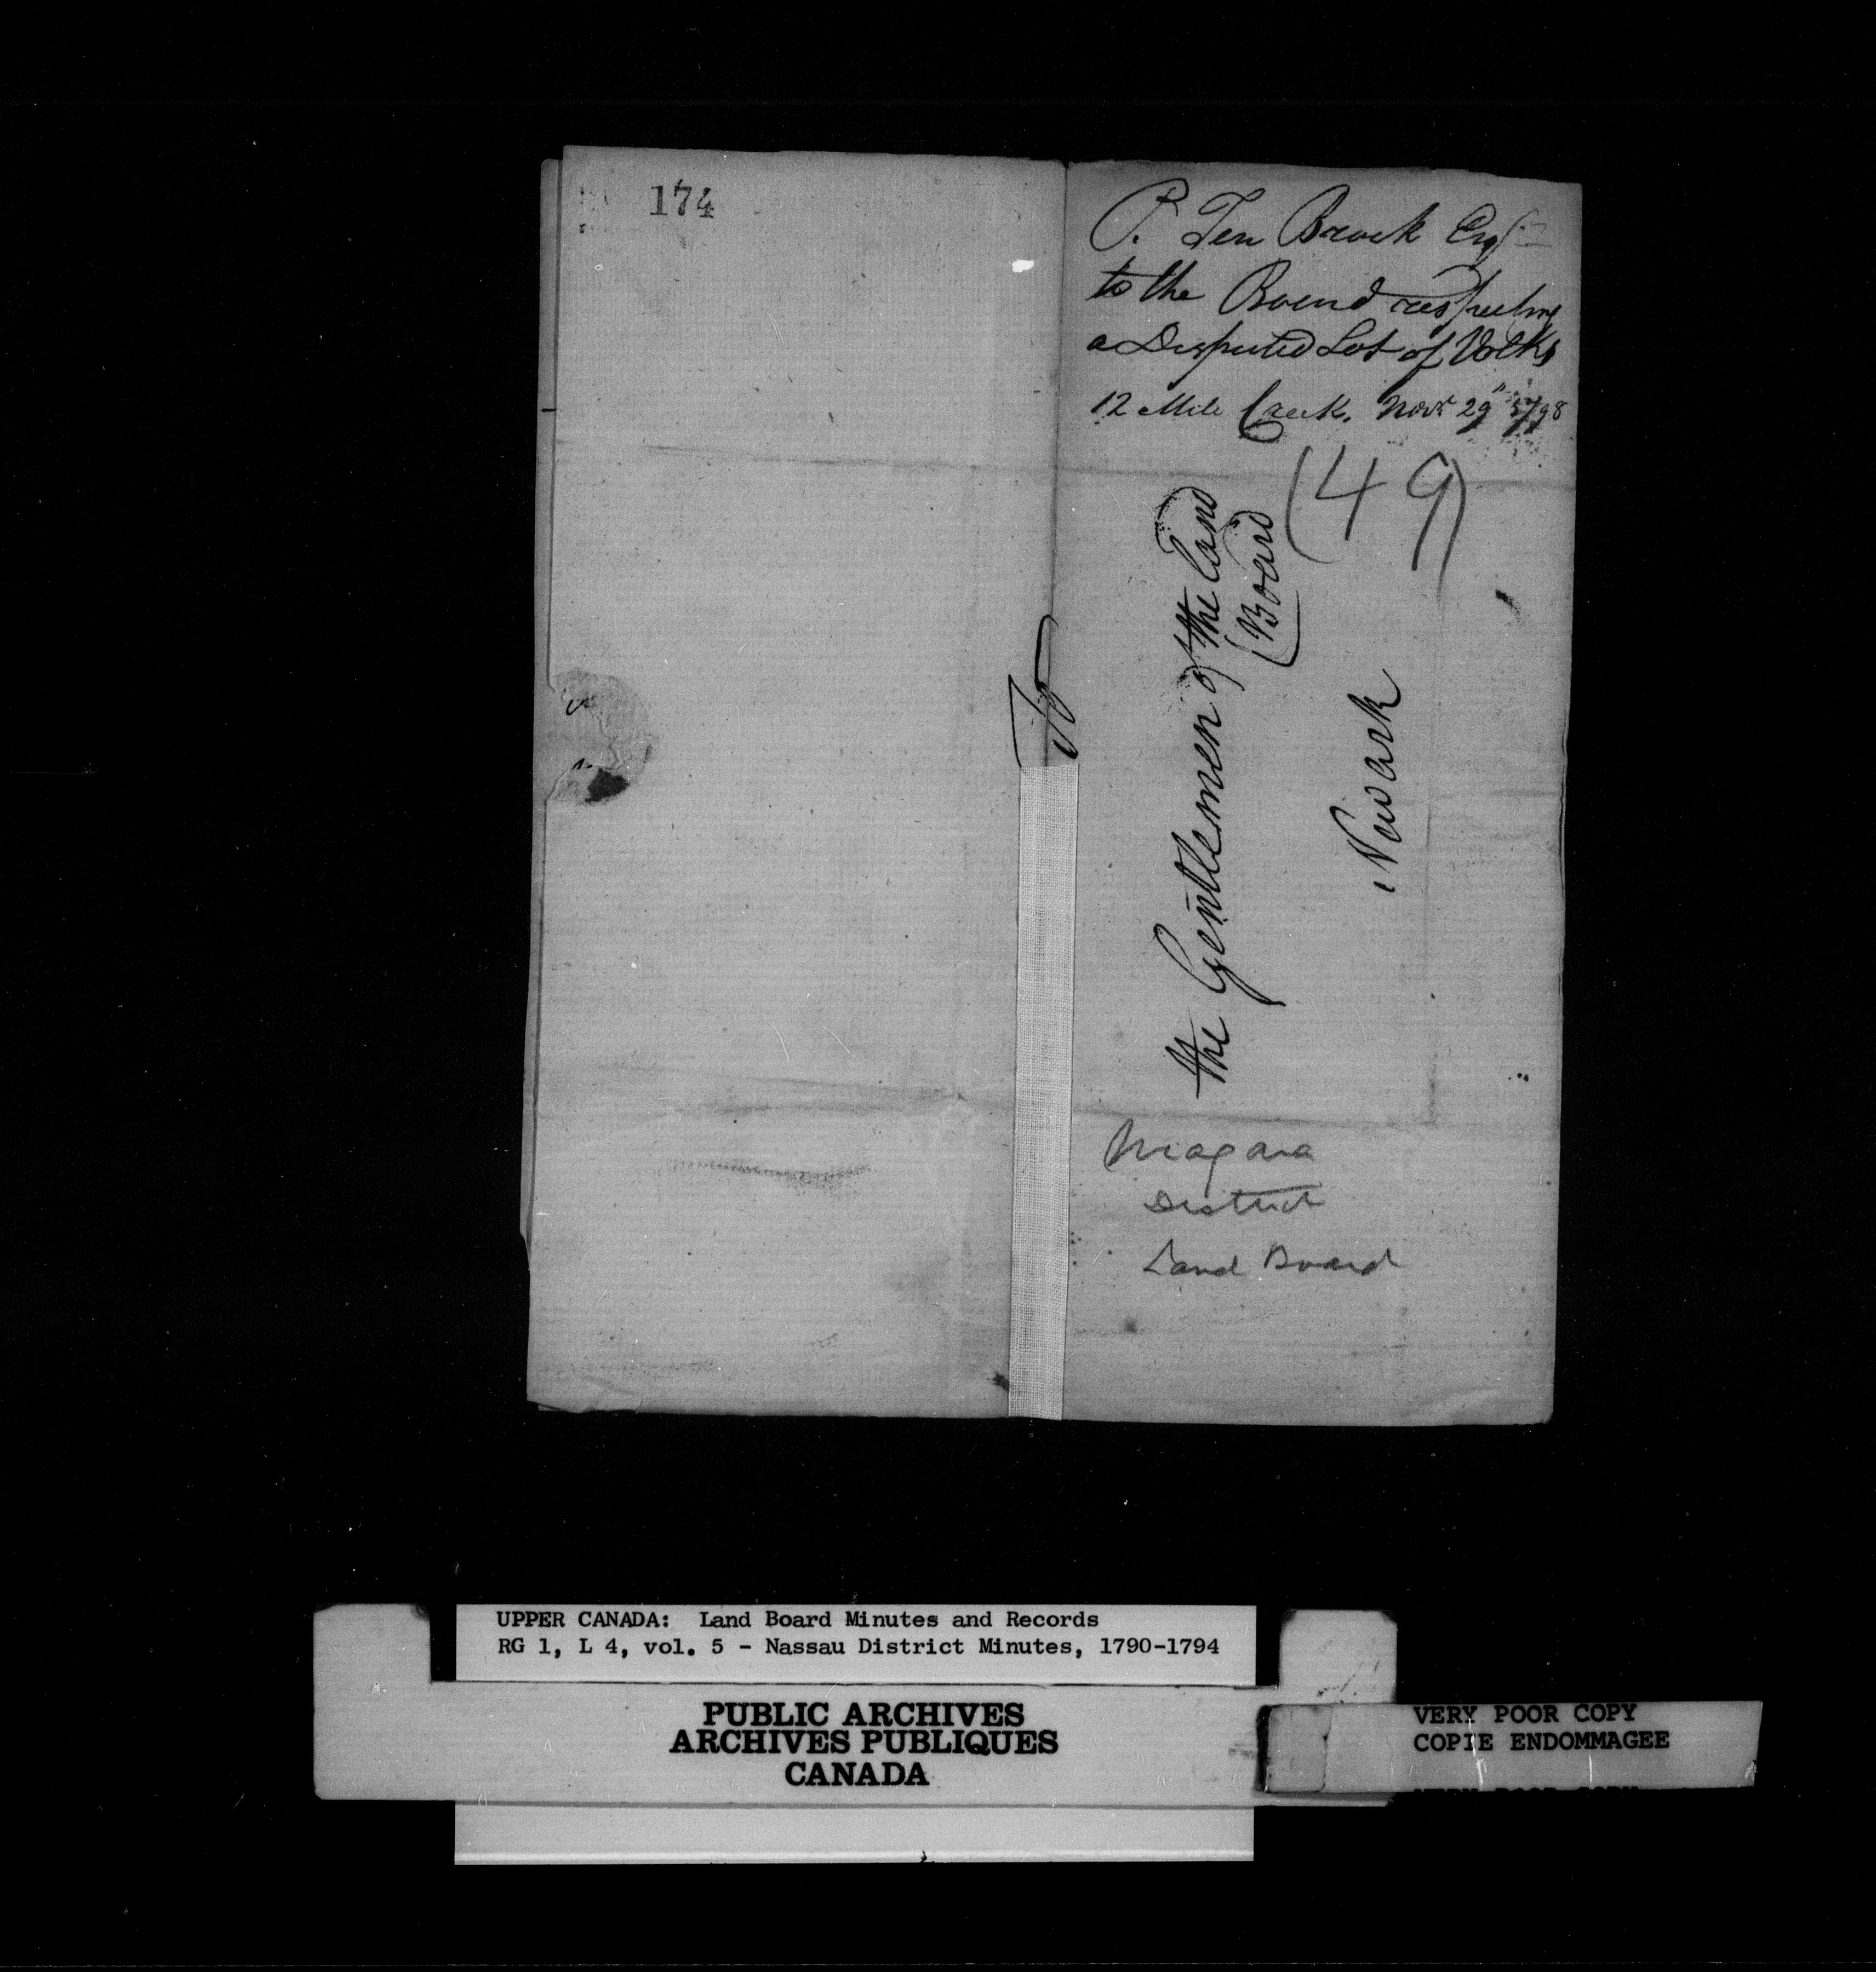 174
P. Ten Broeck Esqr
to the Board respecting
a Disputed Lot of Volks
12 Mile Creek. Novr 29th
(49)
To
the Gentlemen of the Land
Board
Newark
Niagara
District
Land Board
UPPER CANADA: Land Board Minutes and Records
RG 1, L 4, vol. 5 - Nassau District Minutes, 1790-1794
PUBLIC ARCHIVES
ARCHIVES PUBLIQUES
CANADA
VERY POOR COPY
COPIE ENDOMMAGEE